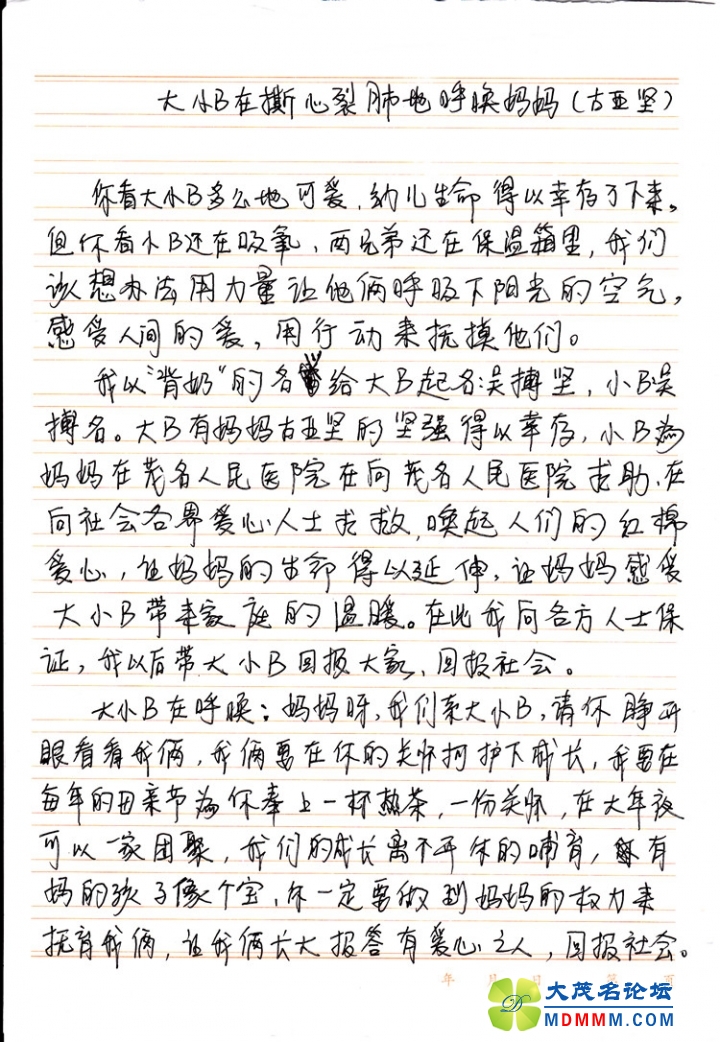 大小B在撕心裂肺地呼唤妈妈(古亚坚)
你看大小B多么地可爱,幼儿生命得以幸存了下来。
但你看小B还在吸氧,两兄弟还在保温箱里,我们
该想办法用力量让他俩呼吸下阳光的空气,
感受人间的爱,用行动来抚摸他们。
我以"背奶"的名给大B起名:吴搏坚,小B吴
搏名。大B有妈妈古亚坚的坚强得以幸存,小B為
妈妈在茂名人民医院在向茂名人民医院求助、在
向社会各界爱心人士求救,唤起人们的红棉
爱心,让妈妈的生命得以延伸,让妈妈感受
大小B带来家庭的温暖。在此我向各方人士保
证,我以后带大小B回报大家、回报社会。
大小B在呼唤:妈妈呀,我们系大小B,请你睁开
眼看看我俩,我俩要在你的关怀呵护下成长,我要在
每年的母亲节為你奉上一杯热茶,一份关怀,在大年夜
可以一家团聚,我们的成长离不开你的哺育,有
妈的孩子像个宝,你一定要做到妈妈的权力来
抚育我俩,让我俩长大报答有爱心之人,回报社会。
年 月 日 第 页
大茂名论坛
MDMMM.COM